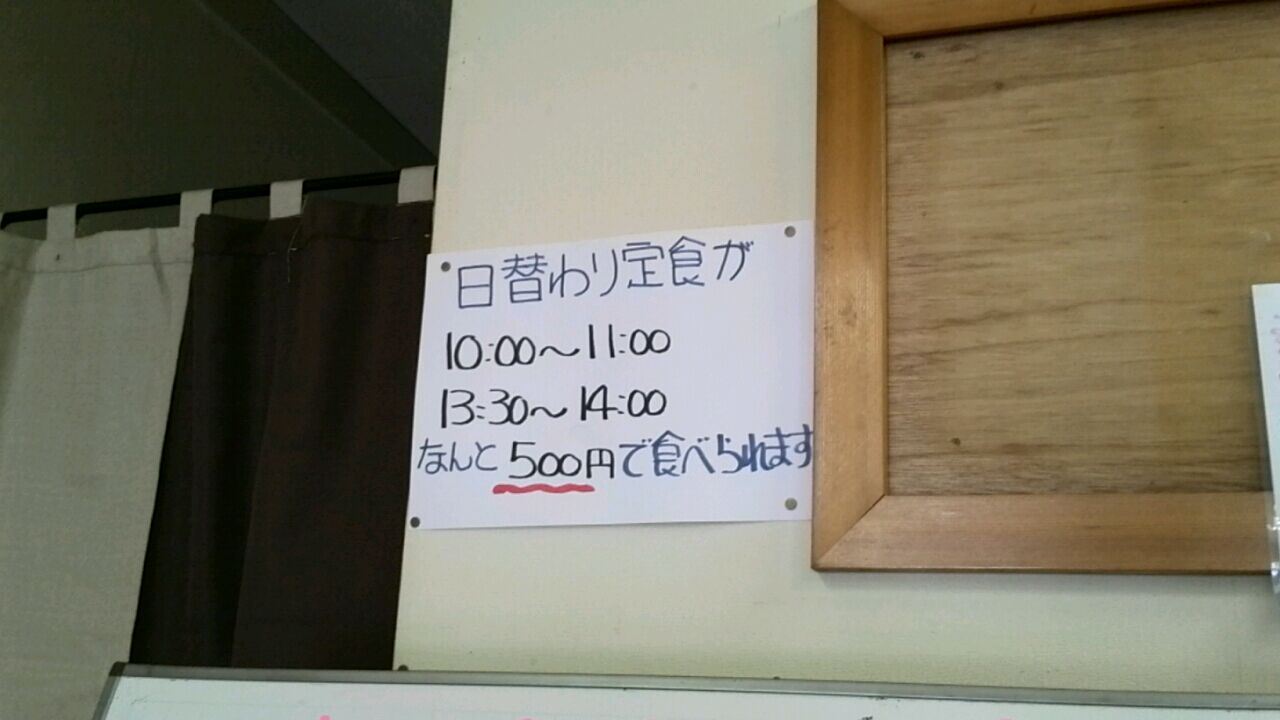 日替わり定食が
10:00～11:00
13:30～14:00
なんと500円で食べられます